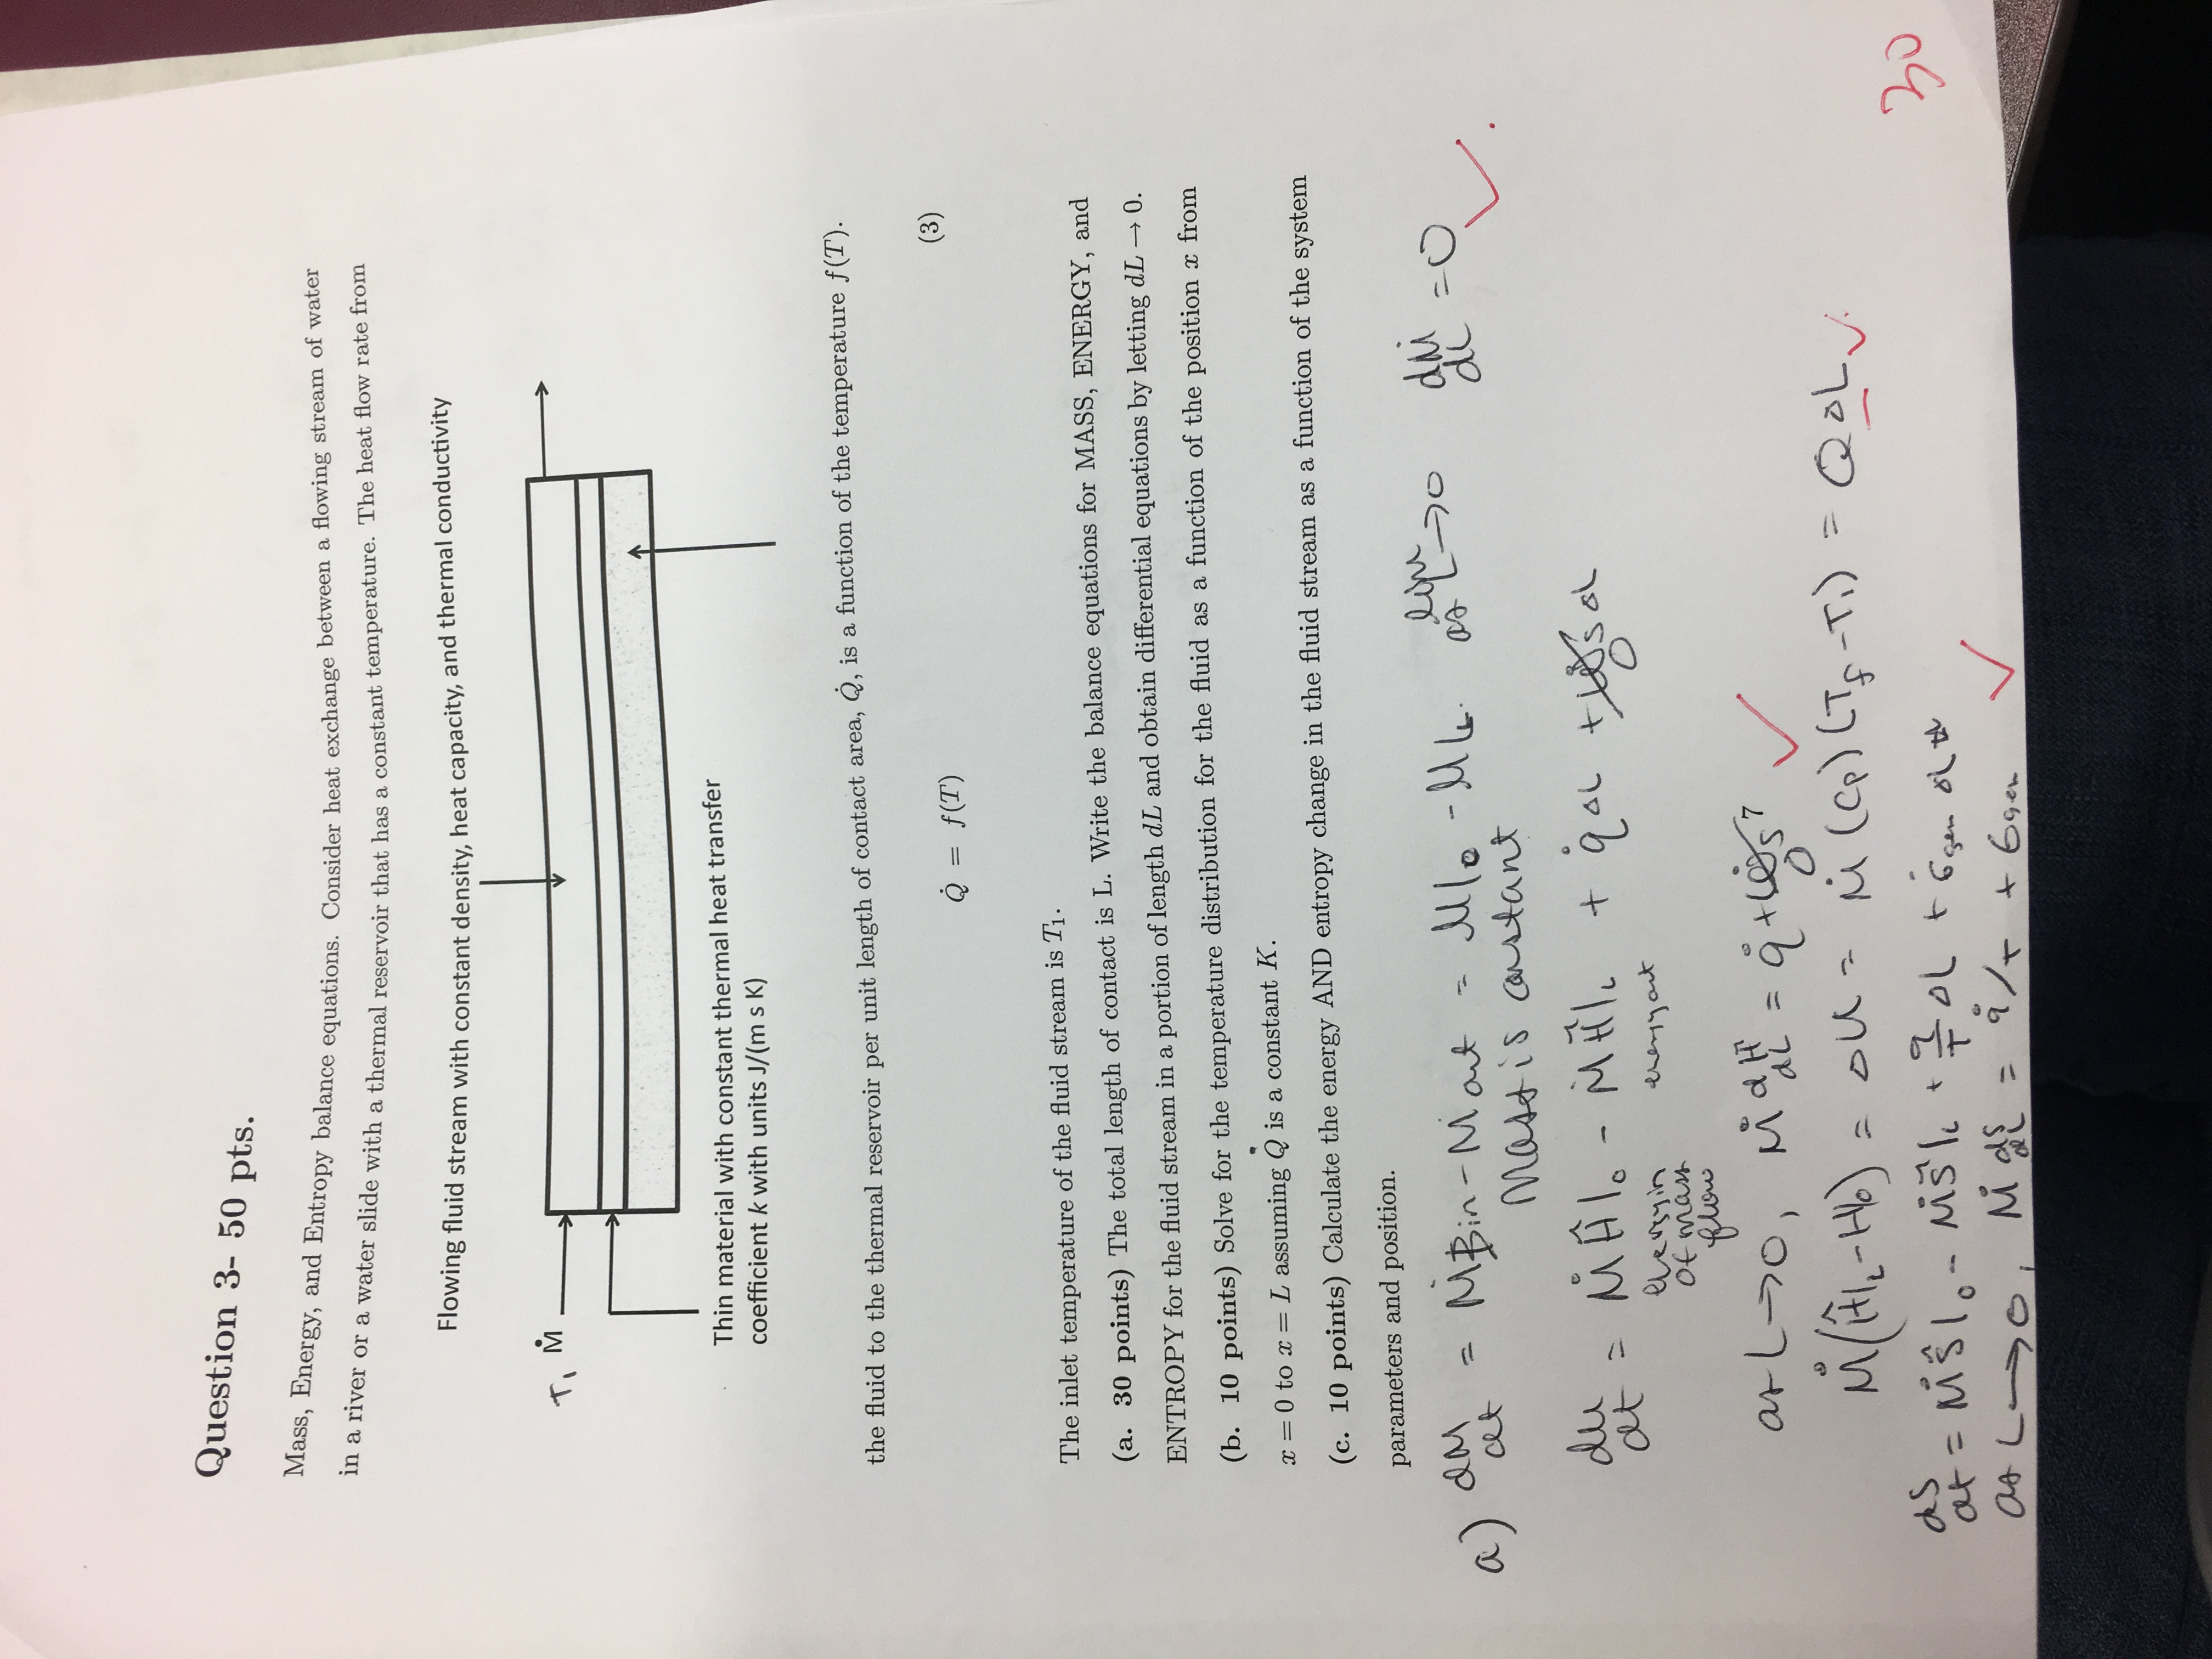 Question 3- 50 pts.
Mass, Energy, and Entropy balance equations. Consider heat exchange between a flowing stream of water
in a river or a water slide with a thermal reservoir that has a constant temperature. The heat flow rate from
Flowing fluid stream with constant density, heat capacity, and thermal conductivity
T₁ Ṁ
Thin material with constant thermal heat transfer
coefficient k with units J/(m s K)
the fluid to the thermal reservoir per unit length of contact area, Q̇, is a function of the temperature f(T).
Q̇ = f(T) (3)
The inlet temperature of the fluid stream is T₁.
(a. 30 points) The total length of contact is L. Write the balance equations for MASS, ENERGY, and
ENTROPY for the fluid stream in a portion of length dL and obtain differential equations by letting dL → 0.
(b. 10 points) Solve for the temperature distribution for the fluid as a function of the position x from
x = 0 to x = L assuming Q̇ is a constant K.
(c. 10 points) Calculate the energy AND entropy change in the fluid stream as a function of the system
parameters and position.
a) dM/dt = Ṁin - Ṁout = M|₀ - M|L. lim as L→0 dṀ/dL = 0
Mass is constant
du/dt = ṀĤ|₀ - ṀĤ|L + q̇ ΔL + ẇs ΔL
0
energy in energy out
of mass
flow
as L→0, Ṁ dĤ/dL = q̇ + ẇs 7
0
Ṁ(Ĥ|L - H|₀) = ΔU = Ṁ(Cp)(Tf - T₁) = QΔL
30
ds/dt = ṀŜ|₀ - ṀŜ|L + q/T ΔL + σ̇gen ΔL
as L→0, Ṁ ds/dL = q̇/T + σgen